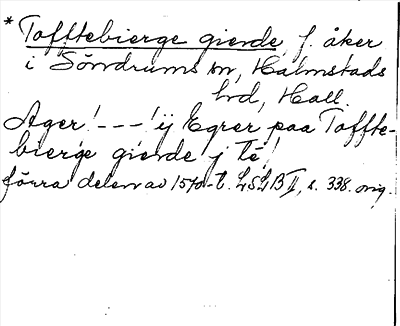 * Tofftebierge gierde, f. åker
i Söndrums sn, Halmstads
hd, Hall.
Ager! --- ! ij Egrer paa Toffte-
bierge gierde j té!
förra delen av 1570-t. LSLB II, s. 338. orig.